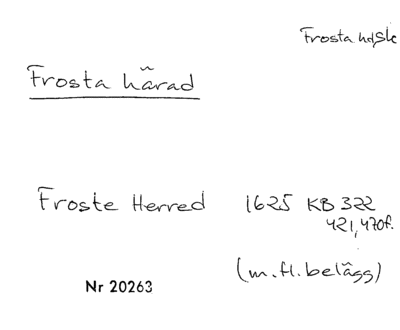 Frosta hdSk
Frosta härad
Froste Herred 1625 KB 322
421, 470f.
(m.fl. belägg)
Nr 20263